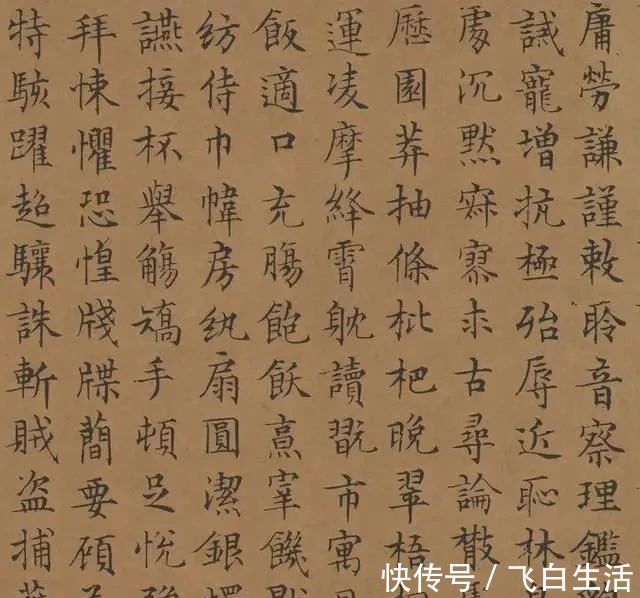 庸勞謙謹敕聆音察理鑑
誡寵增抗極殆辱近恥林
處沉默寂寥求古尋論散
歷園莽抽條枇杷晚翠梧
運凌摩絳霄躭讀翫市寓
飯適口充腸飽飫烹宰饑
紡侍巾幃房紈扇圓潔銀
讌接杯舉觴矯手頓足悅
拜悚懼恐惶牋牒簡要顧
特駭躍超驤誅斬賊盜捕
快传号 / 飞白生活